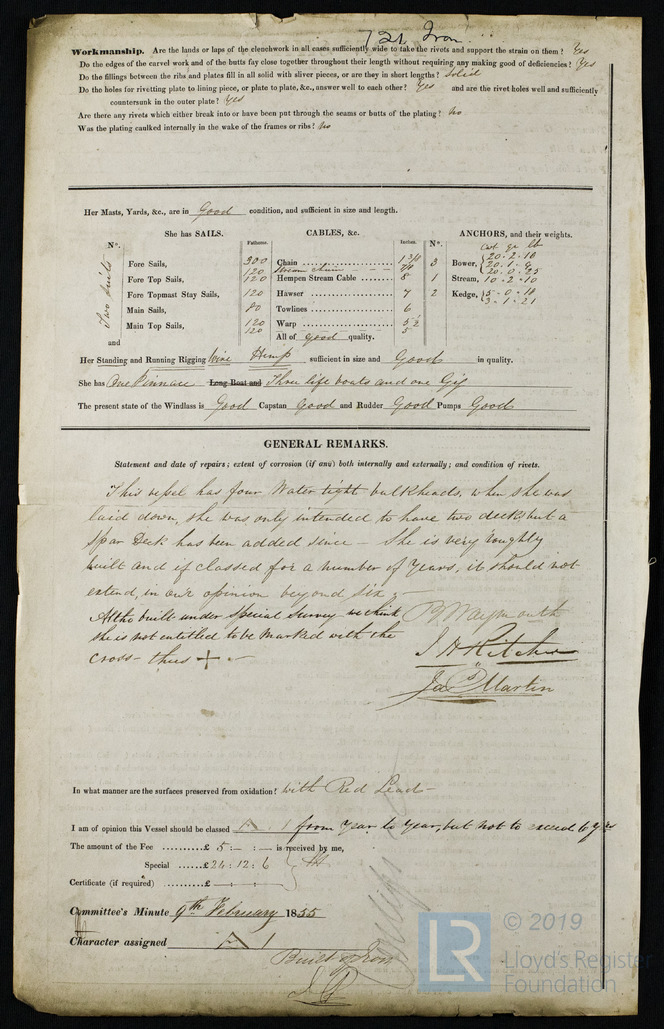 721 Iron
Workmanship. Are the lands or laps of the clenchwork in all cases sufficiently wide to take the rivets and support the strain on them? Yes
Do the edges of the carvel work and of the butts fay close together throughout their length without requiring any making good of deficiencies? Yes
Do the fillings between the ribs and plates fill in all solid with sliver pieces, or are they in short lengths? Solid
Do the holes for rivetting plate to lining piece, or plate to plate, &c., answer well to each other? Yes and are the rivet holes well and sufficiently
countersunk in the outer plate? Yes
Are there any rivets which either break into or have been put through the seams or butts of the plating? No
Was the plating caulked internally in the wake of the frames or ribs? No
Her Masts, Yards, &c., are in Good condition, and sufficient in size and length.
She has SAILS. CABLES, &c. ANCHORS, and their weights.
Nº. Fathoms. Inches. Nº. Cwt qr lb
Fore Sails, 300 Chain 1 3/4 3 Bower, 20 . 2 . 18
120 Stream chain 7/8 20 . 1 . 9
Fore Top Sails, 120 Hempen Stream Cable 8 1 20 . 0 . 25
Stream, 10 . 2 . 10
Fore Topmast Stay Sails, 120 Hawser 7 2 Kedge, 5 . 0 . 18
Main Sails, 80 Towlines 6 3 . 1 . 21
Main Top Sails, 120 Warp 5 1/2
120 5
Two suits
and All of good quality.
Her Standing and Running Rigging Wire Hemp sufficient in size and Good in quality.
She has One Pinnace Long Boat and Three life boats and one Gig
The present state of the Windlass is Good Capstan Good and Rudder Good Pumps Good
GENERAL REMARKS.
Statement and date of repairs; extent of corrosion (if any) both internally and externally; and condition of rivets.
This vessel has four Water tight bulkheads, when she was
laid down, she was only intended to have two decks but a
Spar Deck has been added since — She is very roughly
built and if classed for a number of years, it should not
extend, in our opinion beyond six —
Altho built under Special Survey we think
she is not entitled to be Marked with the
cross - thus + —
B Waymouth
J H Ritchie
Jas Martin
In what manner are the surfaces preserved from oxidation? With Red Lead —
I am of opinion this Vessel should be classed A 1 from Year to Year, but not to exceed 6 yrs
The amount of the Fee .......... £ 5 : - : - is received by me,
Special ..... £ 24 : 12 : 6
Certificate (if required) .......... £ - : - :
Committee's Minute 9th February 1855
Character assigned A 1
Built of Iron
© 2019
LR
Lloyd's Register
Foundation